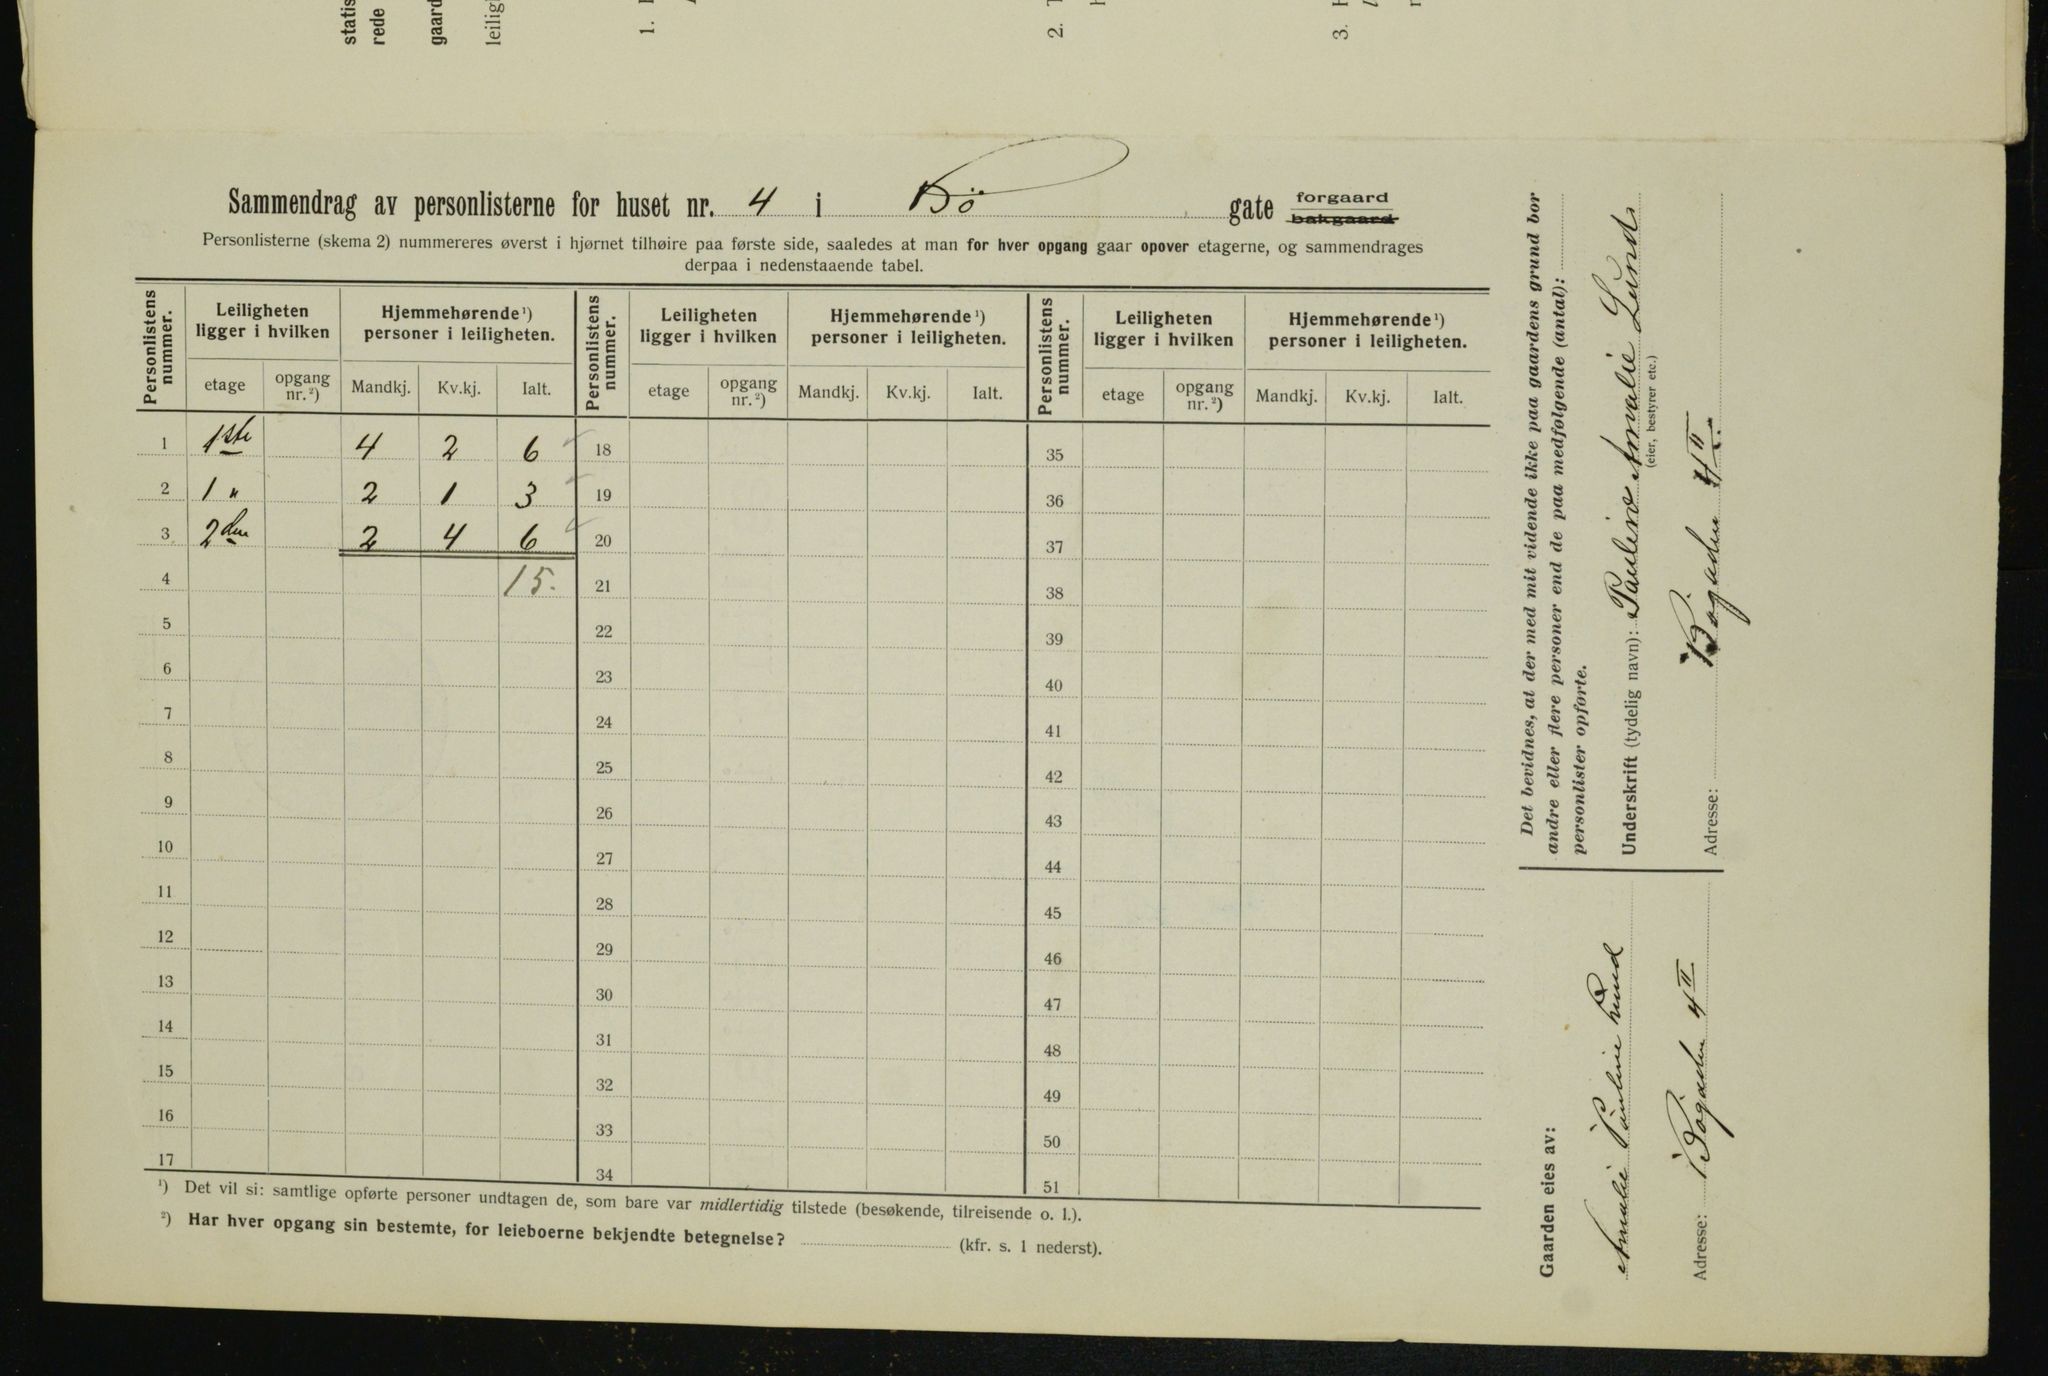 statis
rede
gaard
leilig
1.
2.
3.
Sammendrag av personlisterne for huset nr. 4 i Bö gate forgaard bakgaard
Personlisterne (skema 2) nummereres øverst i hjørnet tilhøire paa første side, saaledes at man for hver opgang gaar opover etagerne, og sammendrages
derpaa i nedenstaaende tabel.
Personlistens nummer. Leiligheten ligger i hvilken Hjemmehørende ¹) personer i leiligheten. Personlistens nummer. Leiligheten ligger i hvilken Hjemmehørende ¹) personer i leiligheten. Personlistens nummer. Leiligheten ligger i hvilken Hjemmehørende ¹) personer i leiligheten.
etage opgang nr. ²) Mandkj. Kv.kj. Ialt. etage opgang nr. ²) Mandkj. Kv.kj. Ialt. etage opgang nr. ²) Mandkj. Kv.kj. Ialt.
1 1ste 4 2 6 18 35
2 1 " 2 1 3 19 36
3 2den 2 4 6 20 37
4 15. 21 38
5 22 39
6 23 40
7 24 41
8 25 42
9 26 43
10 27 44
11 28 45
12 29 46
13 30 47
14 31 48
15 32 49
16 33 50
17 34 51
¹) Det vil si: samtlige opførte personer undtagen de, som bare var midlertidig tilstede (besøkende, tilreisende o. l.).
²) Har hver opgang sin bestemte, for leieboerne bekjendte betegnelse? (kfr. s. 1 nederst).
Gaarden eies av:
Amalie Pauline Lund
Adresse: Bögaden 4 II
Det bevidnes, at der med mit vidende ikke paa gaardens grund bor
andre eller flere personer end de paa medfølgende (antal):
personlister opførte.
Underskrift (tydelig navn): Pauline Amalie Lund
(eier, bestyrer etc.)
Adresse: Bøgaden 4 II.